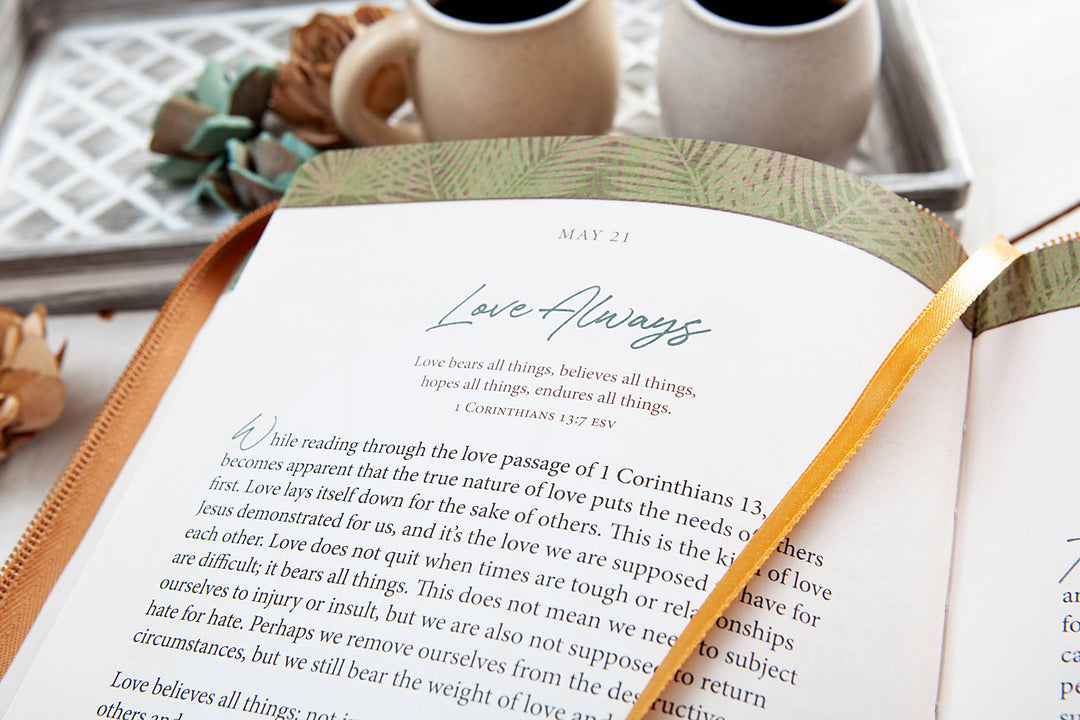 MAY 21
Love Always
Love bears all things, believes all things,
hopes all things, endures all things.
1 Corinthians 13:7 ESV
While reading through the love passage of 1 Corinthians 13,
becomes apparent that the true nature of love puts the needs of others
first. Love lays itself down for the sake of others. This is the kind of love
Jesus demonstrated for us, and it's the love we are supposed have for
each other. Love does not quit when times are tough or relationships
are difficult; it bears all things. This does not mean we need to subject
ourselves to injury or insult, but we are also not supposed to return
hate for hate. Perhaps we remove ourselves from the destructive
circumstances, but we still bear the weight of love and
Love believes all things; not
others and